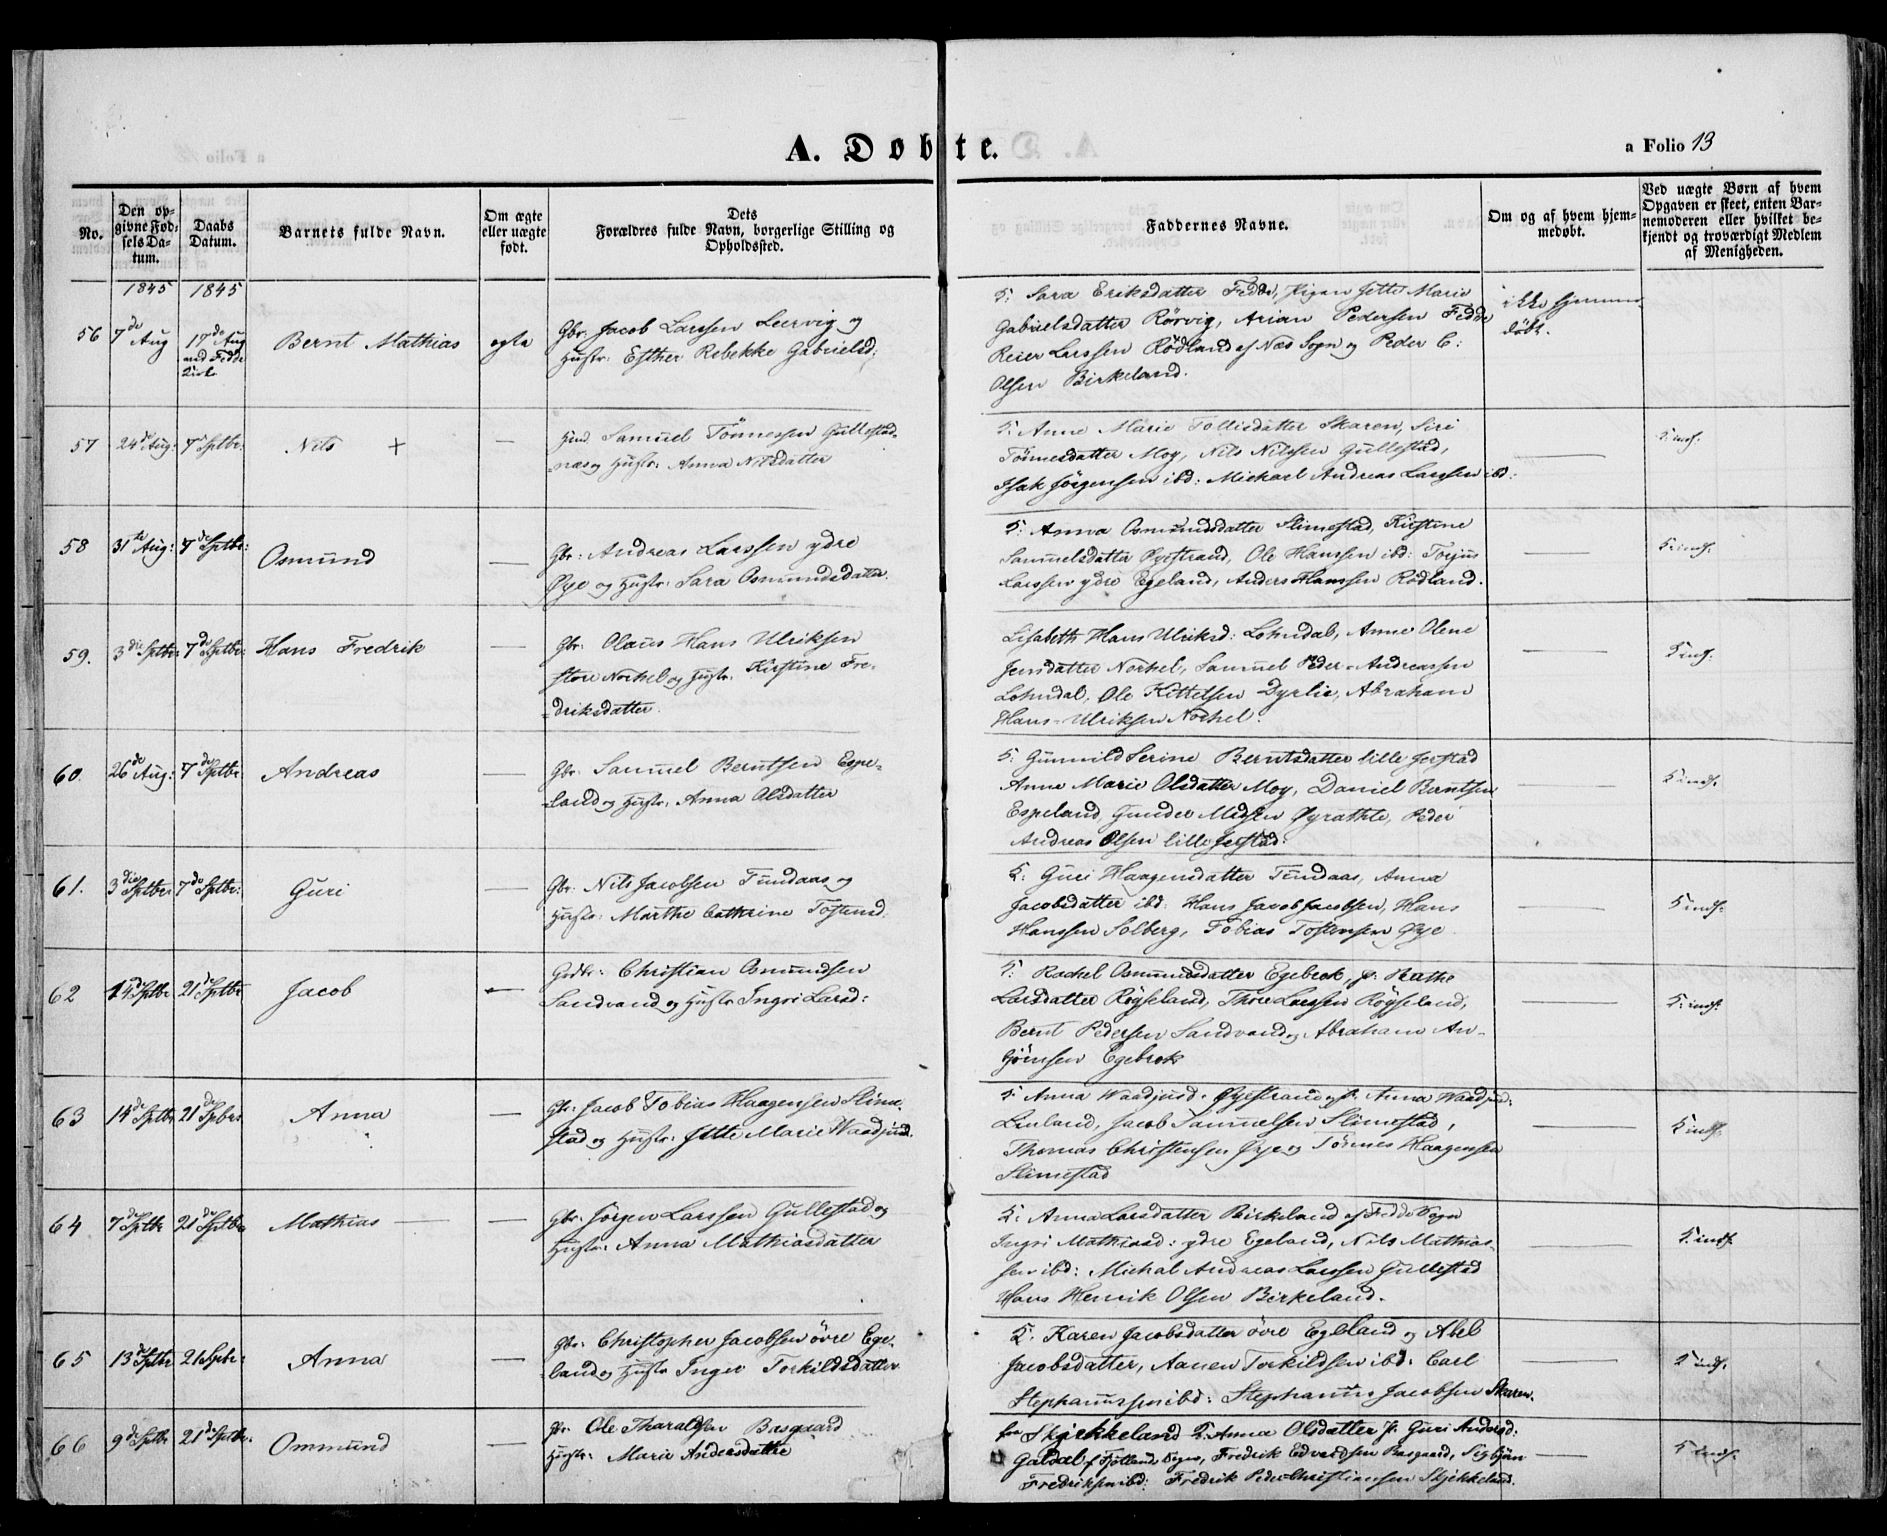 A. Døbte.
a Folio 13
No.
Den op-
givne Fød-
sels Da-
tum.
Daabs
Datum.
Barnets fulde Navn.
Om ægte
eller uægte
født.
Dets
Forældres fulde Navn, borgerlige Stilling og
Opholdssted.
Faddernes Navne.
Om og af hvem hjem-
medøbt.
Ved uægte Børn af hvem
Opgaven er skeet, enten Bar-
nemoderen eller hvilket be-
kjendt og troværdigt Medlem
af Menigheden.
1845 1845
56 7de Aug 17de Aug
ved Fedde
Kirke
Bernt Mathias
ægte
Gbr. Jacob Larssen Leervig og
Hustr: Esther Rebekke Gabrielsd:
K: Sara Eriksdatter Fedde, Pigen Jette Marie
Gabrielsdatter Rörvig, Arian Pedersen Fedde
Reier Larssen Rödland af Næs Sogn og Peder C:
Olsen Birkeland.
ikke hjemme
døbt.
57 24de Aug: 7de Sptbr: Nils + —
Hmd. Samuel Tönnessen Gullestad-
næs og Hustr. Anna Nilsdatter
K: Anne Marie Tollisdatter Skaren, Siri
Tönnesdatter Moy, Nils Nilssen Gullestad,
Isak Jörgensen ibd: Mickael Andreas Larssen ibd:
— K: inds:
58 31te Aug: 7de Sptbr: Osmund —
Gbr: Andreas Larssen ydre
Øye og Hustr: Sara Osmundsdatter.
K: Anna Osmundsdatter Slimestad, Kirstine
Samuelsdatter Øyestrand, Ole Hanssen ibd: Torjus
Larssen ydre Egeland, Anders Hanssen Rödland.
— K: inds:
59. 3die Sptbr: 7de Sptbr: Hans Fredrik —
Gbr: Olaus Hans Ulriksen
store Norhel og Hustr. Kirstine Fre-
driksdatter.
Lisabeth Hans Ulriksd: Lohndal, Anne Olene
Jensdatter Norhel, Samuel Peder Andreassen
Lohndal, Ole Kittelsen Dyrlie, Abraham
Hans-Ulriksen Norhel.
— K inds:
60. 26de Aug: 7de Sptbr Andreas —
Gbr. Samuel Berntsen Espe-
land og Hustr: Anna Olsdatter
K: Gunnild Serine Berntsdatter lille Jerstad
Anne Marie Olsdatter Moy, Daniel Berntsen
Espeland, Gunder Madsen Øyrathte, Peder
Andreas Olsen lille Jerstad:
— K inds:
61. 3die Sptbr 7de Sptbr: Guri —
Gbr. Nils Jacobsen Tundaas og
Hustr: Marthe Cathrine Tostensd.
K: Guri Haagensdatter Tundaas, Anna
Jacobsdatter ibd: Hans Jacob Jacobsen, Hans
Hanssen Solberg, Tobias Tostensen Øye
— K inds:
62 14de Sptbr 21de Sptbr Jacob —
Gbr: Christian Osmundsen
Sandvand og Hustr: Ingri Larsd:
K: Rachel Osmundsdatter Egebrok, p: Marthe
Larsdatter Röyseland, Thore Larssen Röyseland,
Bernt Pedersen Sandvand og Abraham An-
Egebrok
— K: inds:
63 14de Sptbr 21de Sptbr: Anna —
Gbr: Jacob Tobias Haagensen Slime-
stad og Hustr: Jette Marie Waadjusd.
K: Anna Waadjusd: Øyestrand p: Anna Waadjusd:
Linland, Jacob Samuelsen Slimestad,
Thomas Christensen Øye og Tönnes Haagensen
Slimestad
— K inds:
64 7de Sptbr 21de Sptbr Mathias —
Gbr: Jörgen Larssen Gullestad og
Hustr: Anna Mathiasdatter
K: Anna Larsdatter Birkeland af Fedde Sogn
Ingri Mathiasd: ydre Egeland, Nils Mathias-
sen ibd: Michal Andreas Larssen Gullestad
Hans Henrik Olsen Birkeland.
— K: inds
65 13de Sptbr 21 Sptbr: Anna —
Gbr: Christopher Jacobsen övre Ege-
land og Hustr Inger Torkildsdatter
K. Karen Jacobsdatter övre Egeland og Abel
Jacobsdatter, Aanen Torkildsen ibd: Carl
Stephanussen ibd: Stephanus Jacobsen Skaren.
— K inds:
66 9de Sptbr 21de Sptbr: Ommund —
Gbr. Ole Tharaldsen Basgaard
Hustr: Marie Andersdatter
fra Skjekkeland K: Anna Olsdatter p: Guri Andersd:
Galdal af Fjotlands Sogn, Fredrik Edvardsen Basgaard, Sigbjön
Fredriksen ibd: Fredrik Peder Christiansen Skjekkeland.
— K inds: